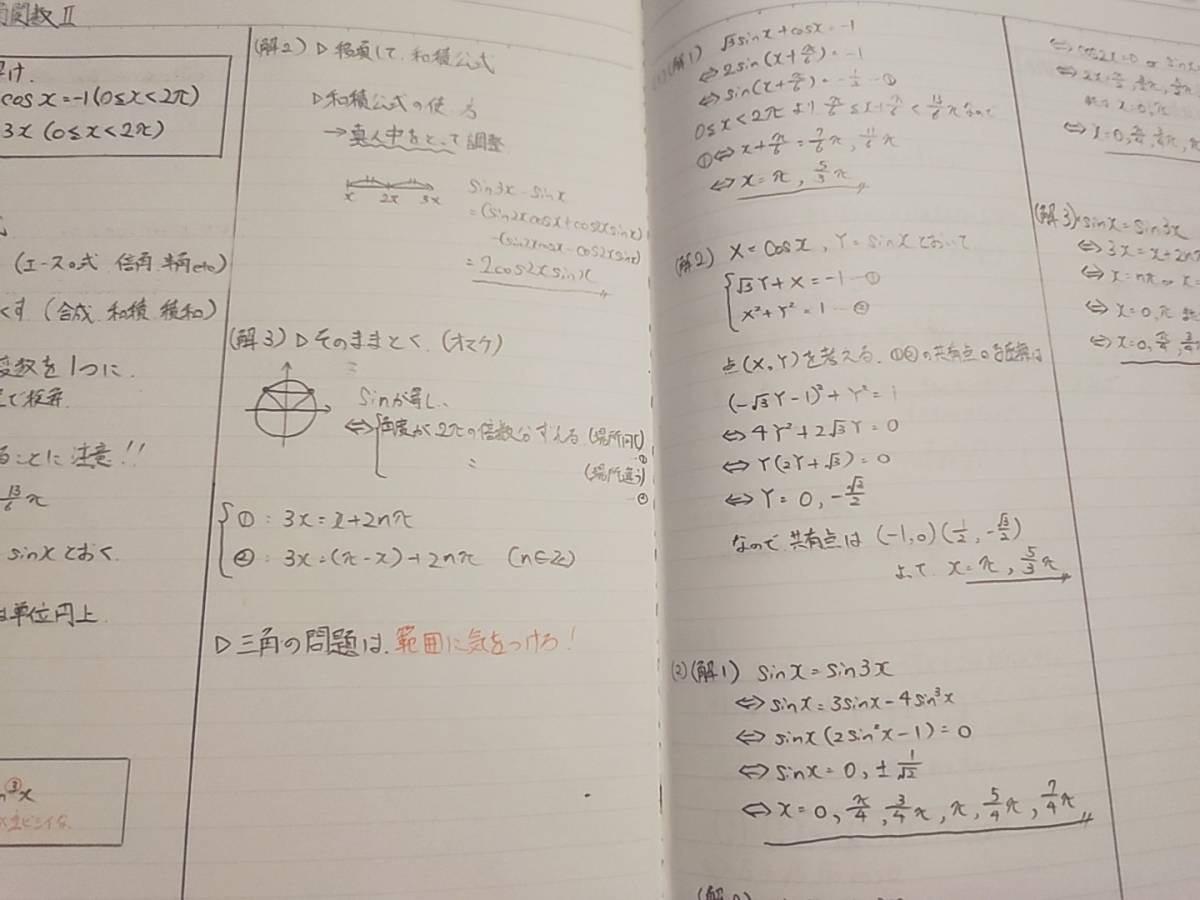 関数Ⅱ
解け.
cosx=-1(0≤x<2π)
3x (0≤x<2π)
(エースの式 倍角 半角etc)
くす (合成 和積 積和)
変数を1つに.
ることに注意!!
13/6π
sinxとおく.
は単位円上.
③x
(解2) ▷移項して 和積公式
▷和積公式の使い方
→真ん中をとって調整
x 2x 3x
sin3x-sinx
=(sin2xcosx+cos2xsinx)
-(sin2xcosx-cos2xsinx)
=2cos2xsinx
(解3) ▷そのままとく. (オマケ)
sinが等しい
⇔{角度が2πの倍数分ずれる (場所同じ)
…①
(場所違う)
…②
{①: 3x=x+2nπ
②: 3x=(π-x)+2nπ (n∈Z)
▷三角の問題は、範囲に気をつけろ!
(1)(解1) √3sinx+cosx=-1
⇔2sin(x+π/6)=-1
⇔sin(x+π/6)=-1/2…①
0≤x<2πより π/6≤x+π/6<13/6πなので
①⇔x+π/6=7/6π, 11/6π
⇔x=π, 5/3π
(解2) X=cosx, Y=sinxとおいて
{√3Y+X=-1…①
X²+Y²=1…②
点(X,Y)を考える. ①②の共有点のY座標は
(-√3Y-1)²+Y²=1
⇔4Y²+2√3Y=0
⇔Y(2Y+√3)=0
⇔Y=0, -√3/2
なので 共有点は (-1,0)(1/2, -√3/2)
よって x=π, 5/3π
(2)(解1) sinx=sin3x
⇔sinx=3sinx-4sin³x
⇔sinx(2sin²x-1)=0
⇔sinx=0, ±1/√2
⇔x=0, π/4, 3/4π, π, 5/4π, 7/4π
⇔cos2x=0 or sinx
(解3) sinx=sin3x
⇔3x=x+2nπ
⇔x=nπ or x=
⇔x=0, π
⇔x=0, π/4, 3/4π